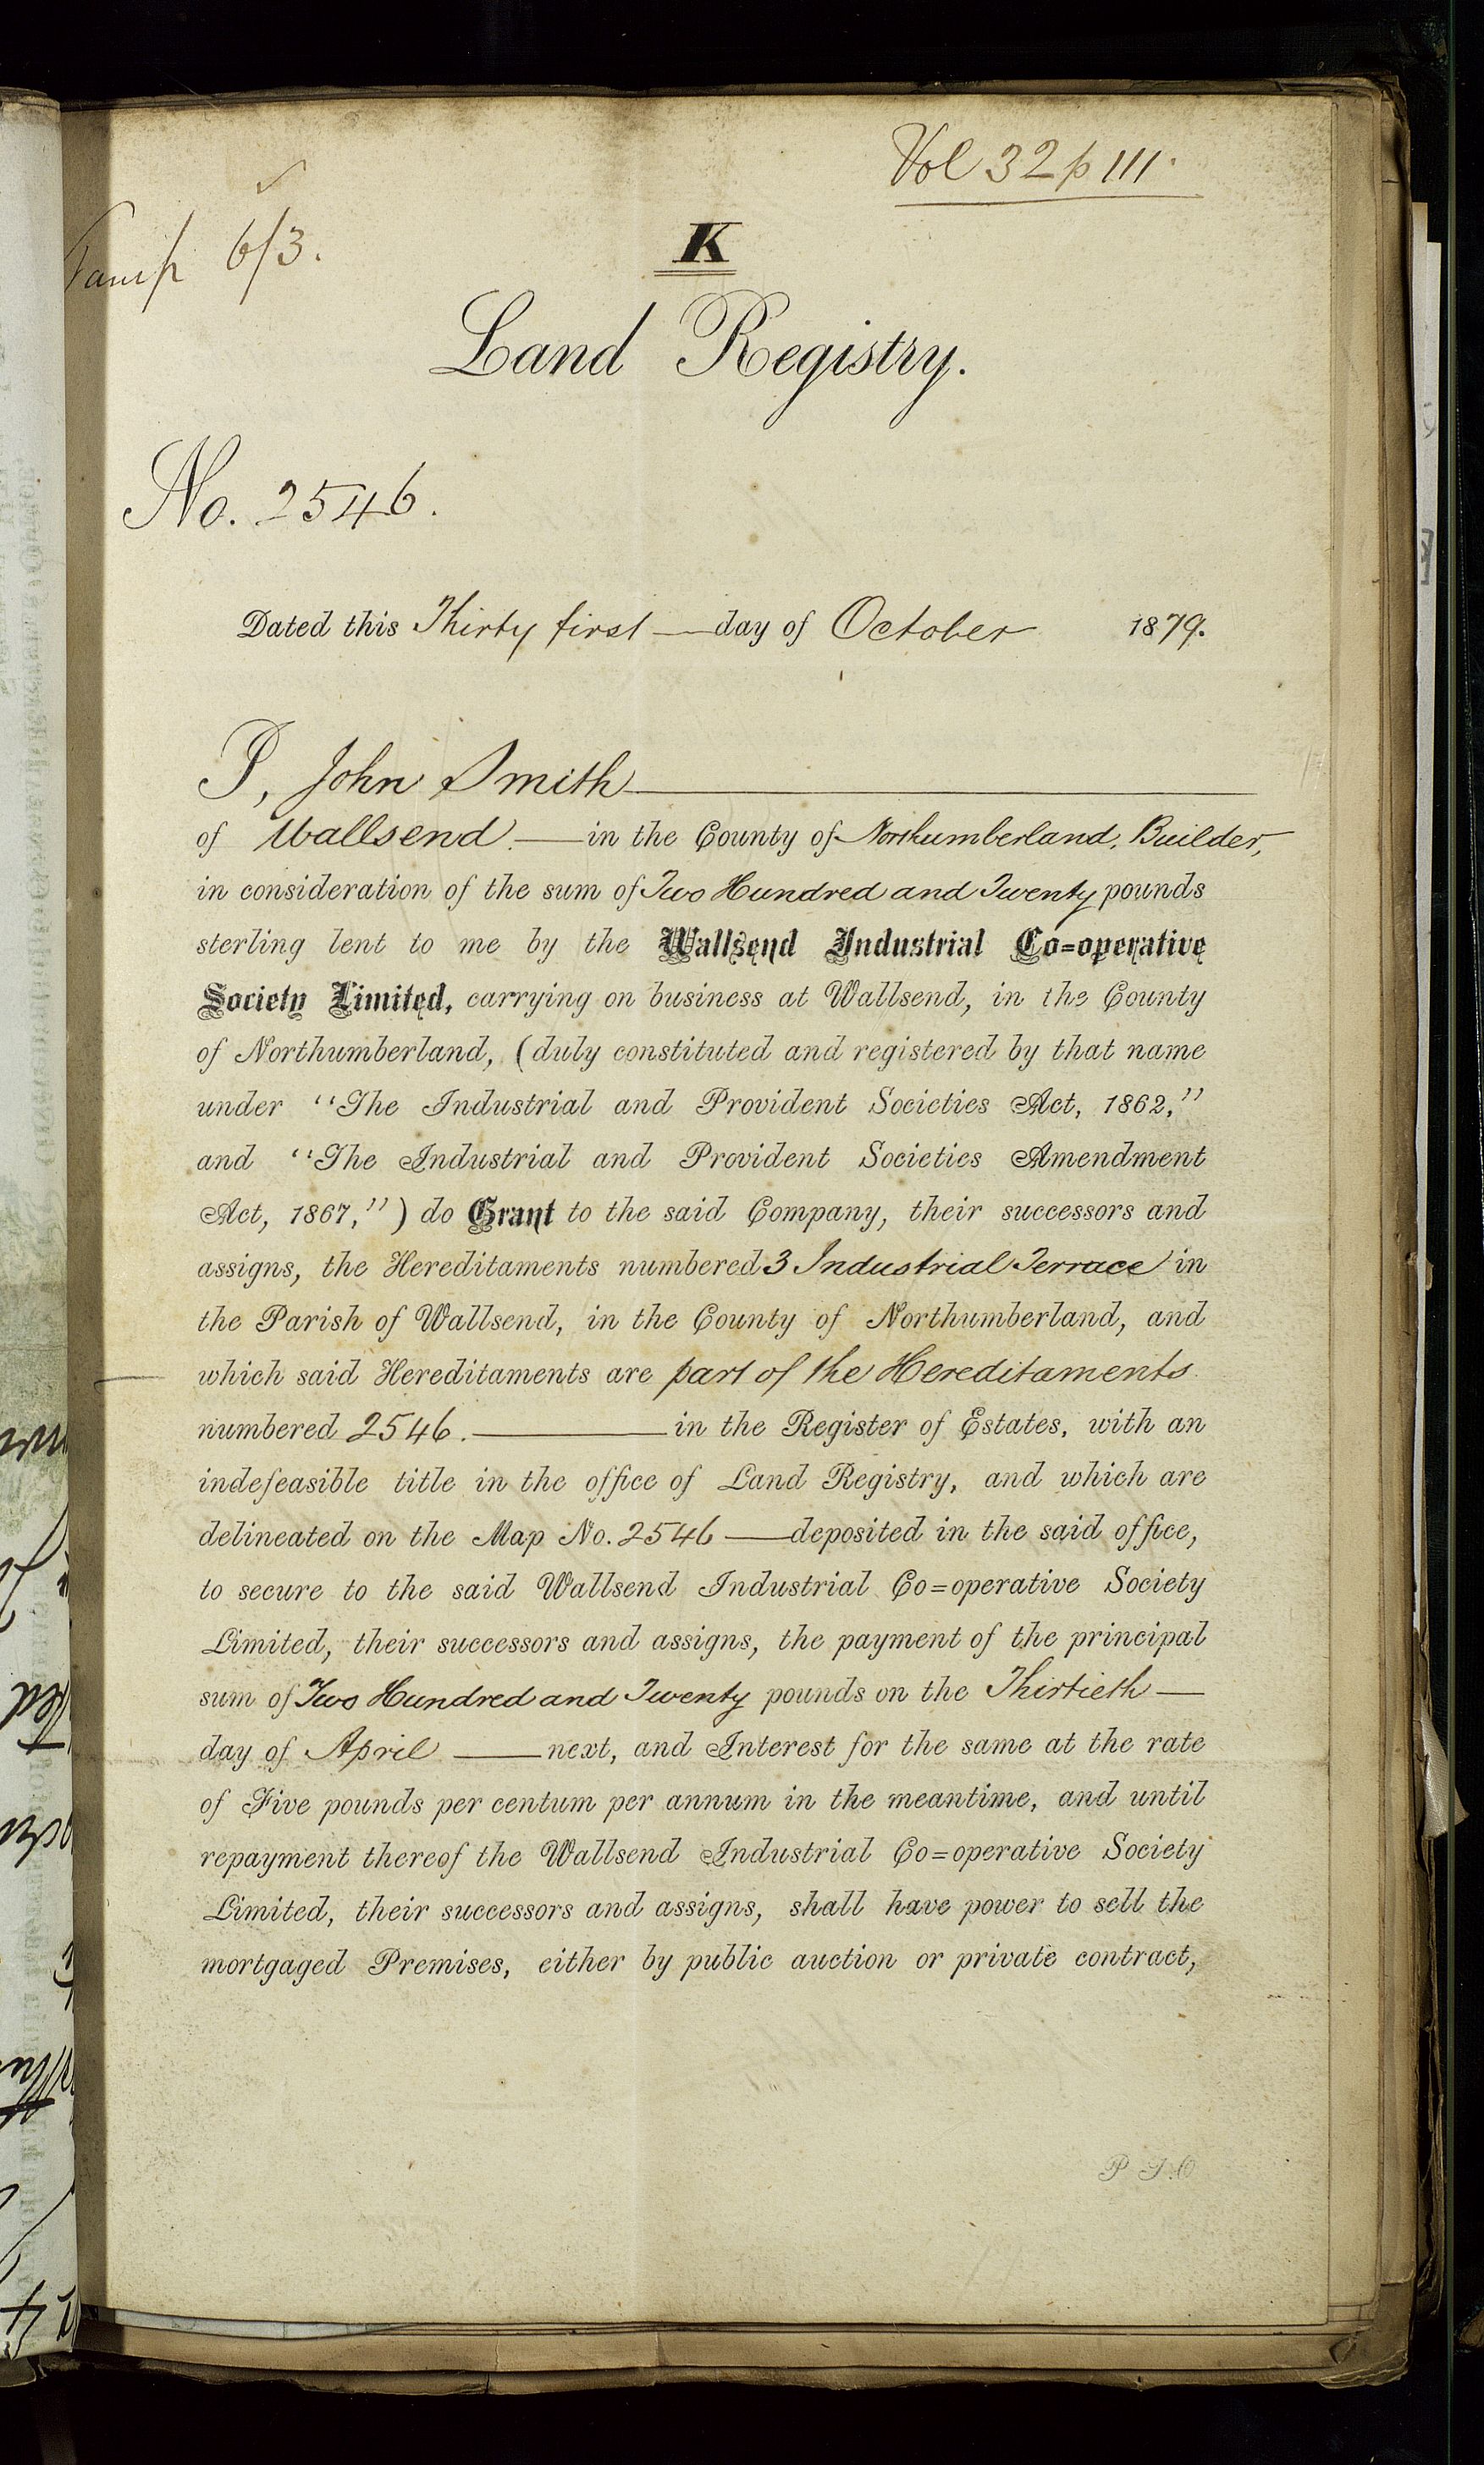 Vol 32 p 111.
Stamp 6/3.
K
Land Registry.
No. 2546.
Dated this Thirty first day of October 1879.
I, John Smith
of Wallsend in the County of Northumberland, Builder,
in consideration of the sum of Two Hundred and Twenty pounds
sterling lent to me by the Wallsend Industrial Co=operative
Society Limited, carrying on business at Wallsend, in the County
of Northumberland, (duly constituted and registered by that name
under "The Industrial and Provident Societies Act, 1862,"
and "The Industrial and Provident Societies Amendment
Act, 1867,") do Grant to the said Company, their successors and
assigns, the Hereditaments numbered 3 Industrial Terrace in
the Parish of Wallsend, in the County of Northumberland, and
which said Hereditaments are part of the Hereditaments
numbered 2546. in the Register of Estates, with an
indefeasible title in the office of Land Registry, and which are
delineated on the Map No. 2546 deposited in the said office,
to secure to the said Wallsend Industrial Co=operative Society
Limited, their successors and assigns, the payment of the principal
sum of Two Hundred and Twenty pounds on the Thirtieth
day of April next, and Interest for the same at the rate
of Five pounds per centum per annum in the meantime, and until
repayment thereof the Wallsend Industrial Co=operative Society
Limited, their successors and assigns, shall have power to sell the
mortgaged Premises, either by public auction or private contract,
P T O